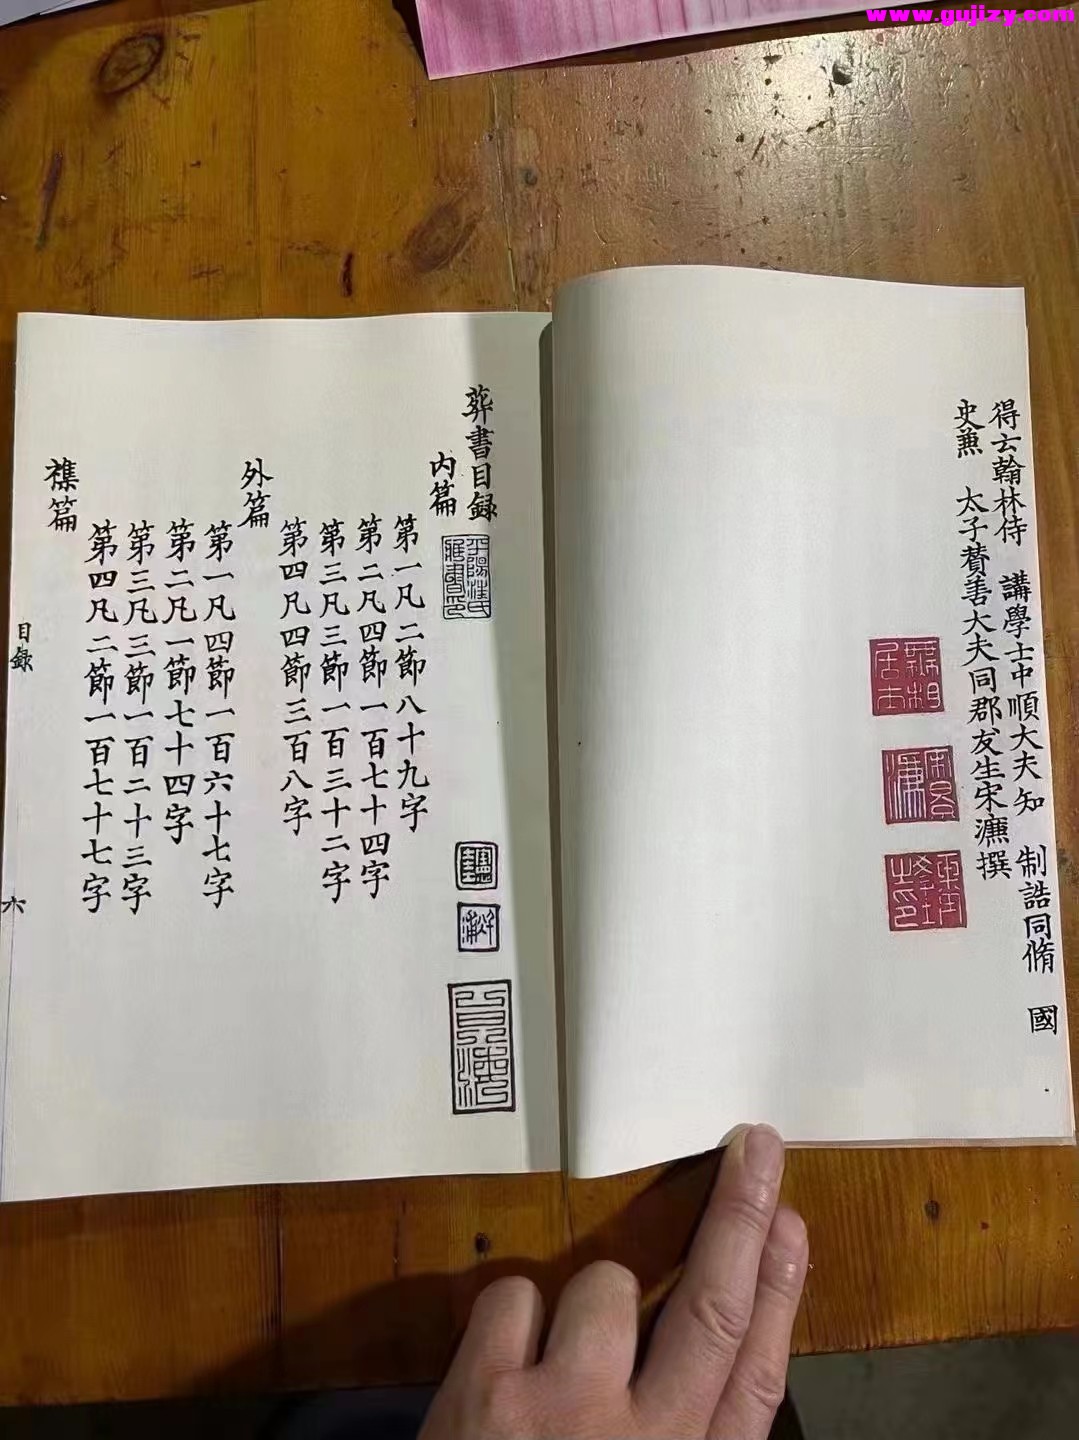 www.gujizy.com
得云翰林侍 講學士中順大夫知 制誥同脩 國
史兼 太子賛善大夫同郡友生宋濂撰
葬書目録
内篇
第一凡二節八十九字
第二凡四節一百七十四字
第三凡三節一百三十二字
第四凡四節三百八字
外篇
第一凡四節一百六十七字
第二凡一節七十四字
第三凡三節一百二十三字
第四凡二節一百七十七字
襍篇
目録
六